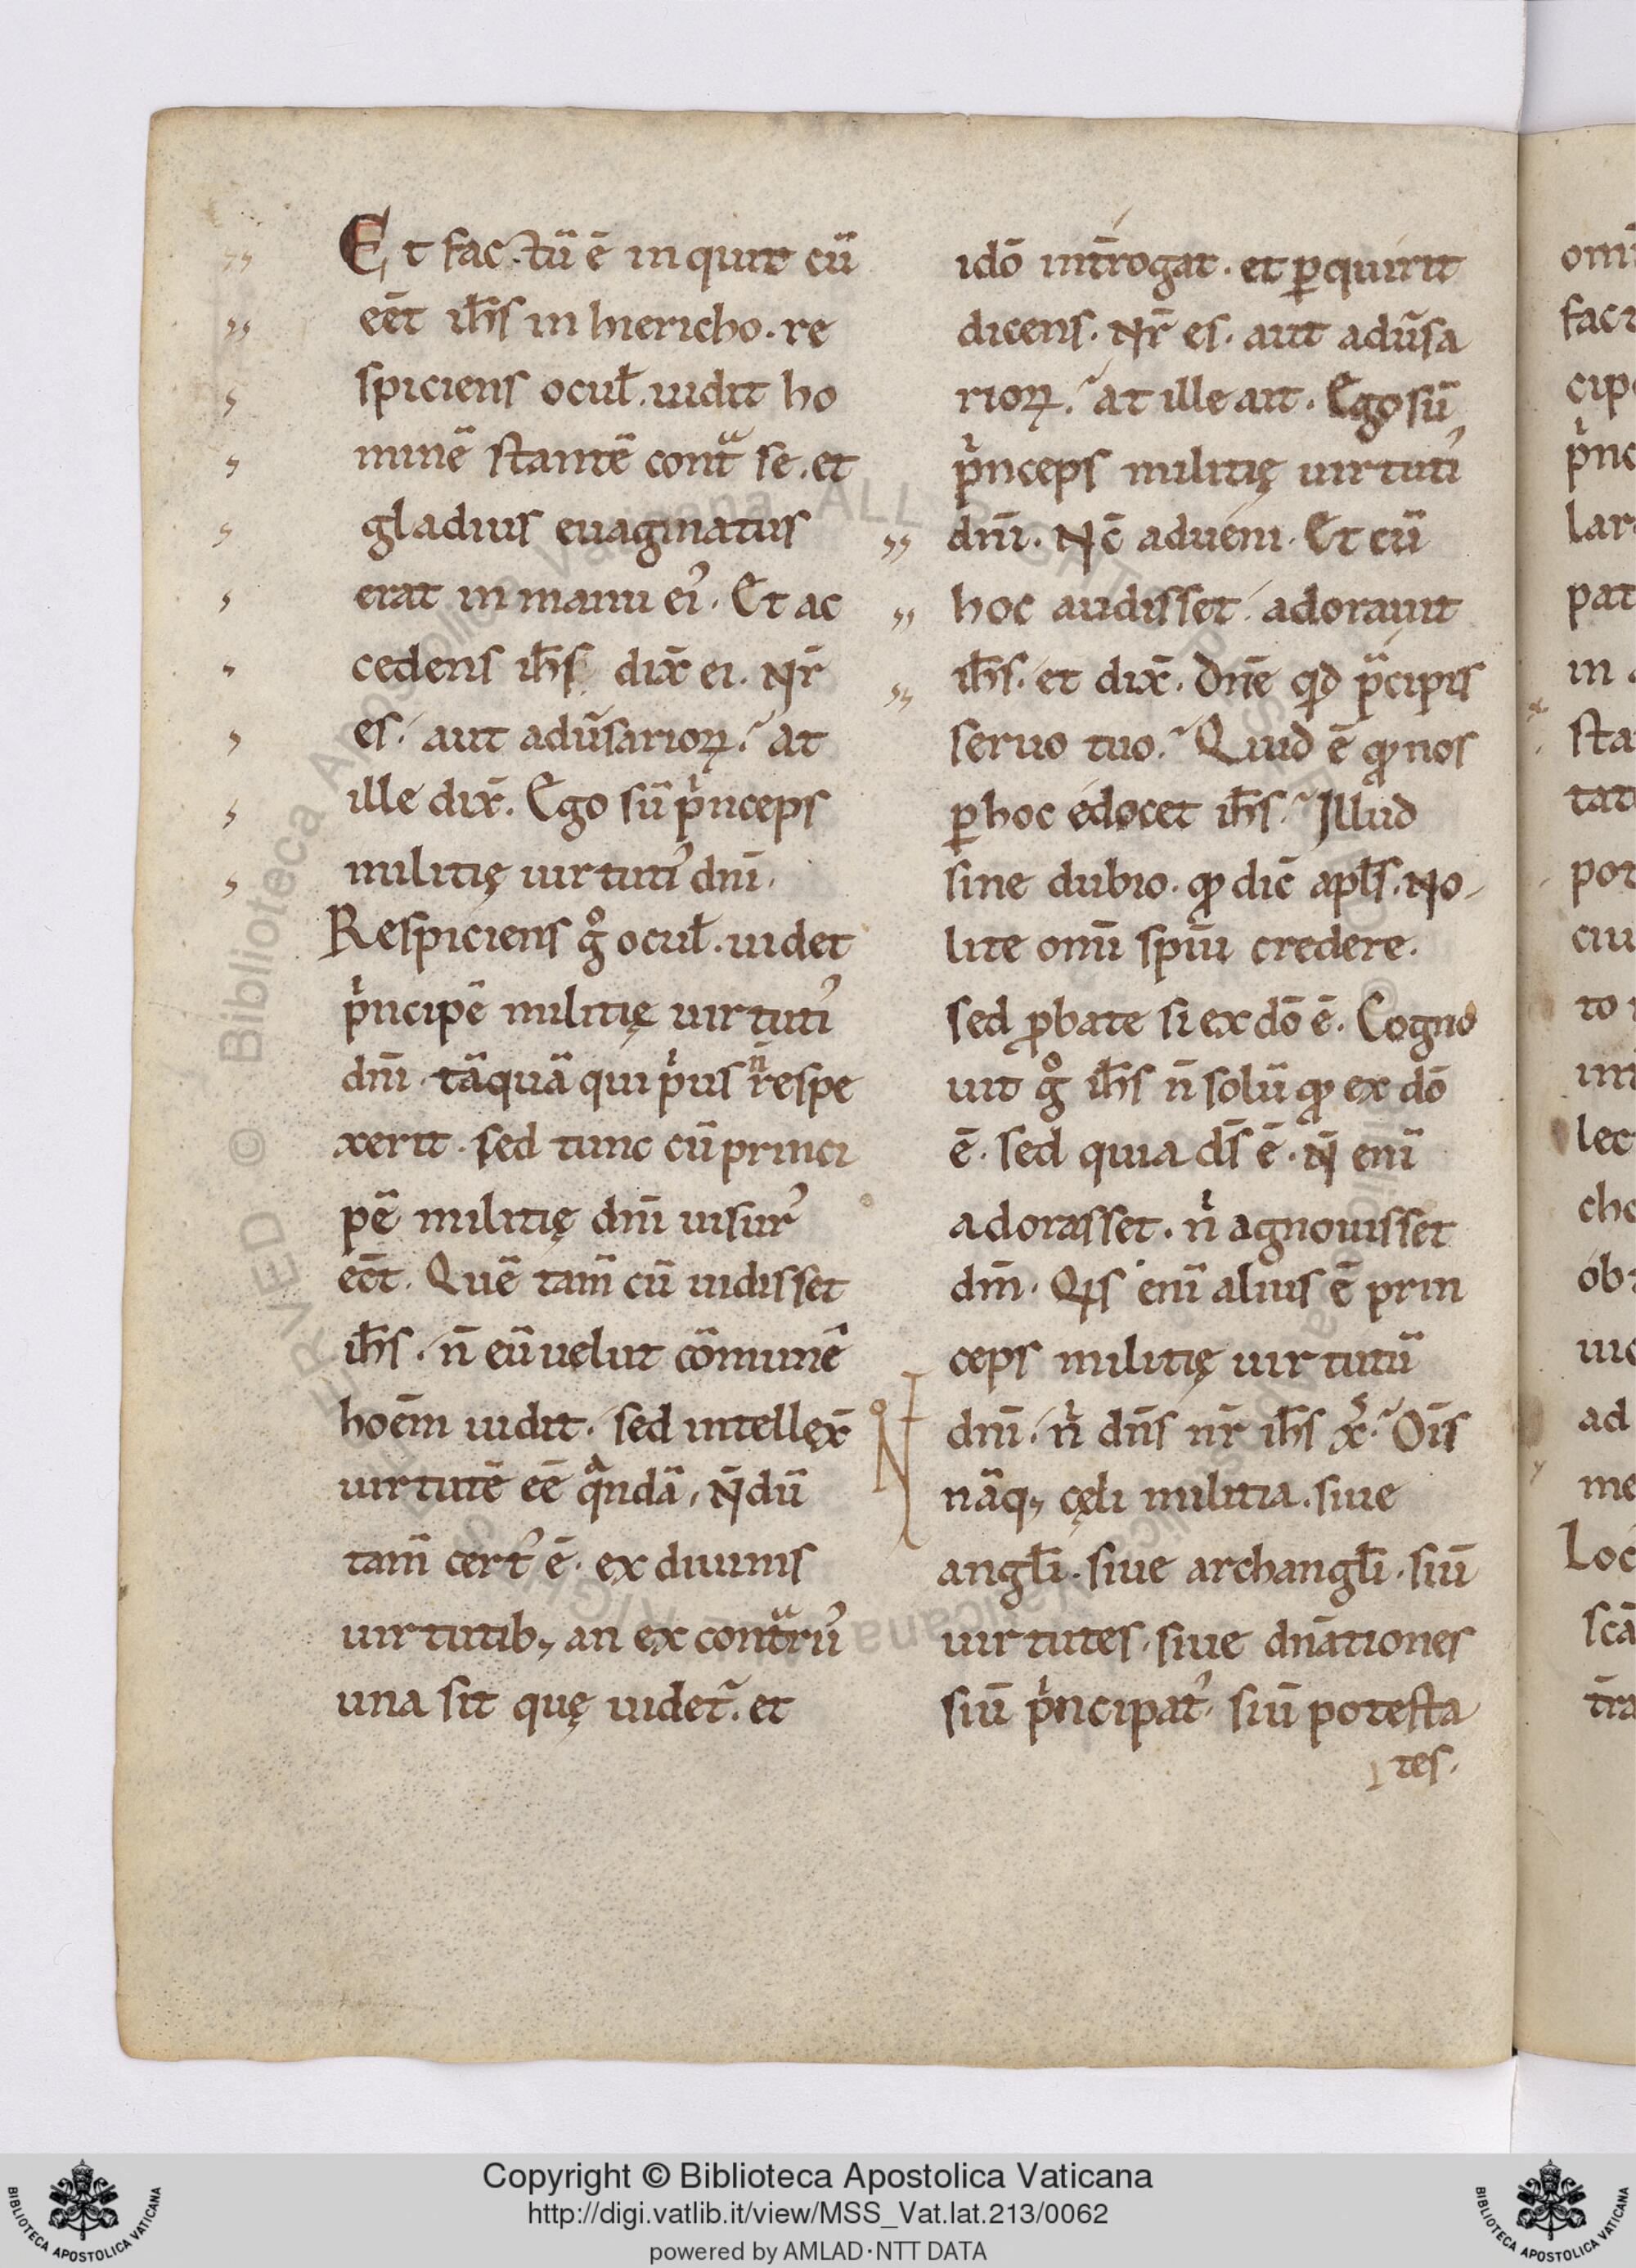 Et factū ē inquit cū
eēt ihs̄ in hiericho. re
spiciens ocul̄. uidit ho
minē stantē contᷓ se. et
gladius euaginatus
erat in manu ei᾽. Et ac
cedens ihs̄ dix̄ ei. Nr̄
es. aut adūsarioꝝ. at
ille dix̄. Ego sū pͥnceps
militię uirtuti᾽ dnī.
Respiciens gͦ ocul̄. uidet
pͥncipē militię uirtuti᾽
dnī. tāquā qui pͥus n̄ respe
xerit. sed tunc cū princi
pē militię dnī uisur᾽
eēt. Quē tam̄ cū uidisset
ihs̄. n̄ eū uelut cōmunē
hoēm uidit. sed intellex̄
uirtutē eē qͣndā, Ndū
tam̄ cert᾽ ē. ex diuinis
uirtutibꝫ an ex contᷓrii᾽
una sit quę uidet᷑. et
idō int̄rogat. et ꝑquirit
dicens. Nr̄ es. aut adūsa
rioꝝ. at ille ait. Ego sū
pͥnceps militię uirtuti᾽
dnī. Nc̄ adueni. Et cū
hoc audisset. adorauit
ihs̄. et dix̄. Dnē qd p̄cipis
seruo tuo. Quid ē qđ nos
ꝑ hoc edocet ihs̄. Illud
sine dubio. qđ dic̄ apls̄. No
lite omī spiū credere.
sed ꝓbate si ex dō ē. Cogno
uit gͦ ihs̄ n̄ solū qđ ex dō
ē. sed quia ds̄ ē. N̄ enī
adorasset. nͥ agnouisset
dm̄. Qis enī alius ē prin
ceps militię uirtutū
dnī. nͥ dns̄ nr̄ ihs̄ xͨ. Oīs
nāqꝫ cęli militia. siue
angl̄i. siue archangl̄i. siū
uirtutes. siue dnātiones
siū pͥncipat᾽. siū potesta
tes.
Copyright © Biblioteca Apostolica Vaticana
http://digi.vatlib.it/view/MSS_Vat.lat.213/0062
powered by AMLAD·NTT DATA